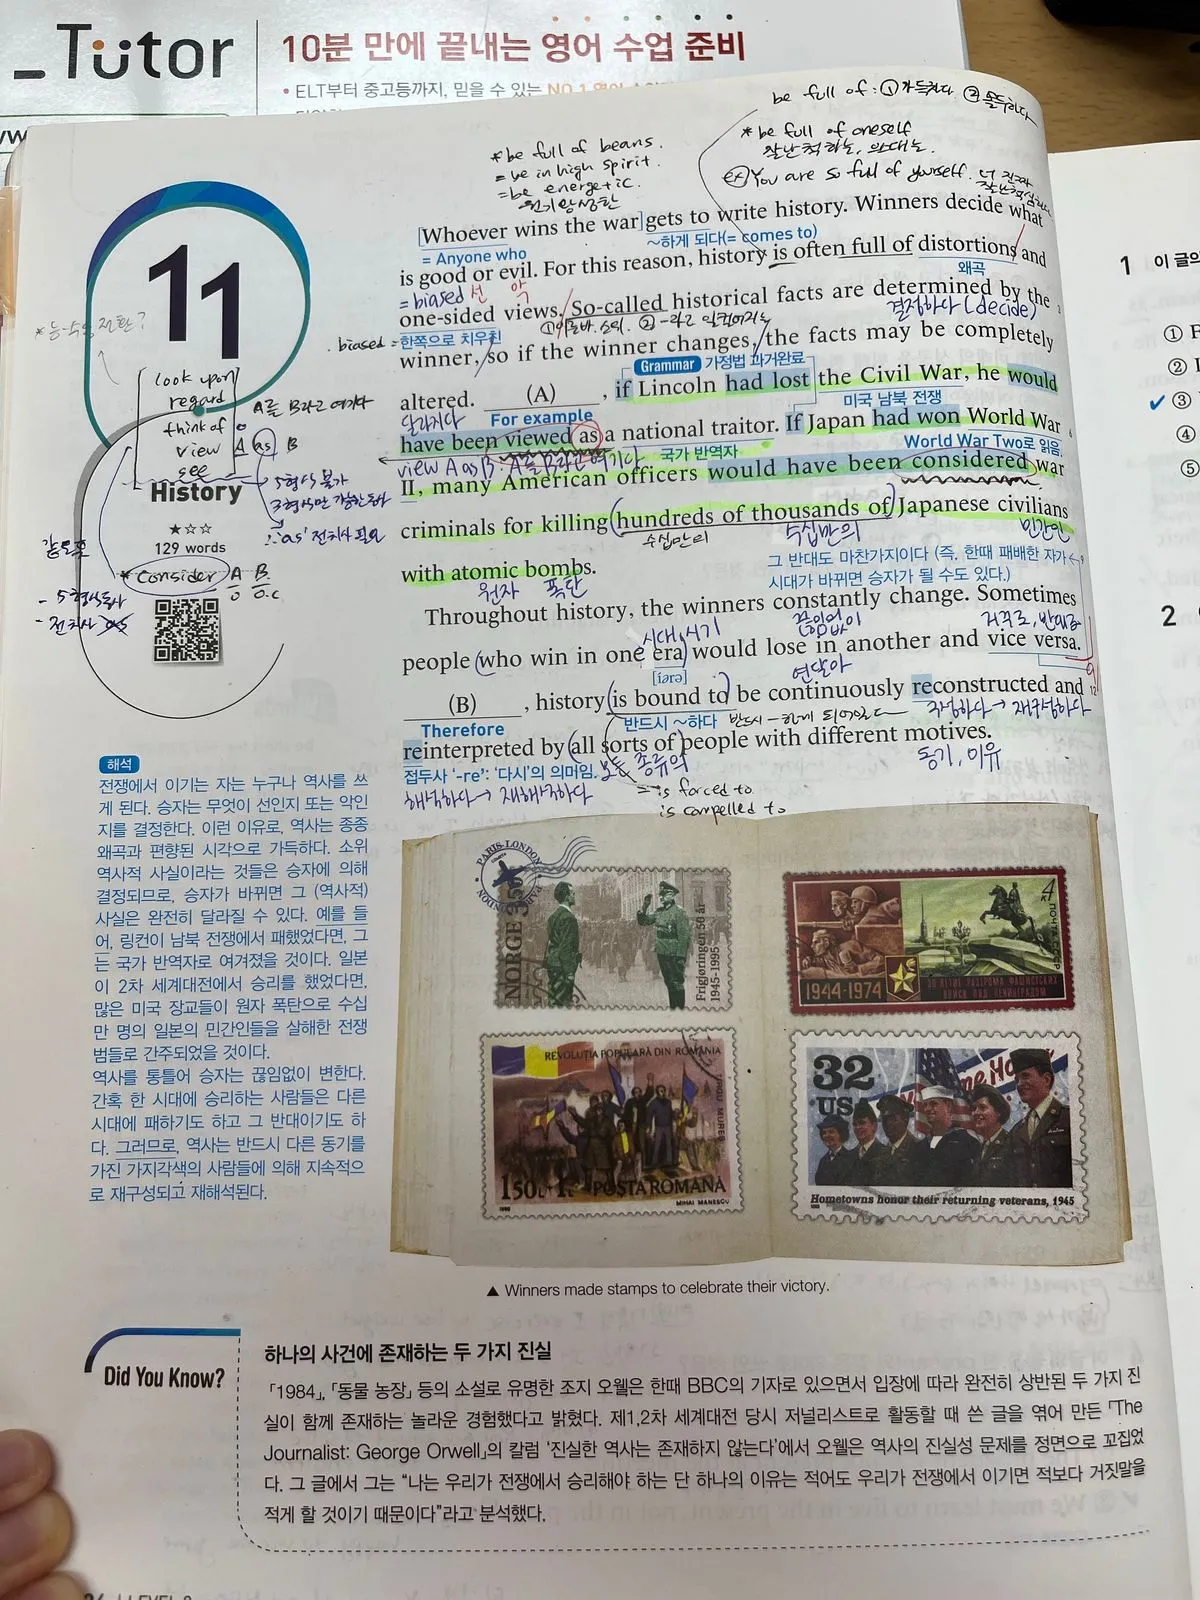 Tutor
10분 만에 끝내는 영어 수업 준비
• ELT부터 중고등까지, 믿을 수 있는 NO.1
be full of : ① 가득하다 ②
* be full of oneself
잘난 척하는,
ex) You are so full of yourself. 너 진짜
* be full of beans.
= be in high spirit.
= be energetic.
원기왕성한
11
History
★☆☆
129 words
look upon
regard
think of
view
see
A as B
A를 B라고 여기다
5형식 불가
3형식만 가능한 동사
∴ 'as' 전치사 필요
* consider A B
O O.C
- 5형식동사
- 전치사
[Whoever wins the war] gets to write history. Winners decide what
= Anyone who
~하게 되다(= comes to)
is good or evil. For this reason, history is often full of distortions and
선 악
왜곡
= biased
one-sided views. So-called historical facts are determined by the
biased = 한쪽으로 치우친
결정하다 (decide)
3
winner, so if the winner changes, the facts may be completely
Grammar 가정법 과거완료
altered. (A) , if Lincoln had lost the Civil War, he would
달라지다
For example
미국 남북 전쟁
have been viewed as a national traitor. If Japan had won World War
6
view A as B : A를 B라고 여기다
국가 반역자
World War Two로 읽음
II, many American officers would have been considered war
criminals for killing hundreds of thousands of Japanese civilians
수십만의
수십만의
민간인
with atomic bombs.
원자 폭탄
그 반대도 마찬가지이다 (즉, 한때 패배한 자가
9
시대가 바뀌면 승자가 될 수도 있다.)
Throughout history, the winners constantly change. Sometimes
시대, 시기
끊임없이
거꾸로, 반대로
people (who win in one era) would lose in another and vice versa.
[íərə]
연달아
(B) , history is bound to be continuously reconstructed and
12
Therefore
반드시 ~하다
구성하다 → 재구성하다
reinterpreted by all sorts of people with different motives.
접두사 '-re': '다시'의 의미임.
모든 종류의
동기, 이유
해석하다 → 재해석하다
= is forced to
is compelled to
해석
전쟁에서 이기는 자는 누구나 역사를 쓰
게 된다. 승자는 무엇이 선인지 또는 악인
지를 결정한다. 이런 이유로, 역사는 종종
왜곡과 편향된 시각으로 가득하다. 소위
역사적 사실이라는 것들은 승자에 의해
결정되므로, 승자가 바뀌면 그 (역사적)
사실은 완전히 달라질 수 있다. 예를 들
어, 링컨이 남북 전쟁에서 패했었다면, 그
는 국가 반역자로 여겨졌을 것이다. 일본
이 2차 세계대전에서 승리를 했었다면,
많은 미국 장교들이 원자 폭탄으로 수십
만 명의 일본의 민간인들을 살해한 전쟁
범들로 간주되었을 것이다.
역사를 통틀어 승자는 끊임없이 변한다.
간혹 한 시대에 승리하는 사람들은 다른
시대에 패하기도 하고 그 반대이기도 하
다. 그러므로, 역사는 반드시 다른 동기를
가진 가지각색의 사람들에 의해 지속적으
로 재구성되고 재해석된다.
PARIS-LONDON
NORGE 350
Frigjøringen 50 år
1945-1995
1944-1974
4К
ПОЧТА СССР
30 ЛЕТИЕ РАЗГРОМА ФАШИСТСКИХ
ВОЙСК ПОД ЛЕНИНГРАДОМ
REVOLUŢIA POPULARĂ DIN ROMÂNIA
TÂRGU MUREŞ
150L+1L POSTA ROMÂNA
MIHAI MANESCU
32
USA
Hometowns honor their returning veterans, 1945
▲ Winners made stamps to celebrate their victory.
Did You Know?
하나의 사건에 존재하는 두 가지 진실
「1984」, 「동물 농장」 등의 소설로 유명한 조지 오웰은 한때 BBC의 기자로 있으면서 입장에 따라 완전히 상반된 두 가지 진
실이 함께 존재하는 놀라운 경험했다고 밝혔다. 제1,2차 세계대전 당시 저널리스트로 활동할 때 쓴 글을 엮어 만든 「The
Journalist: George Orwell」의 칼럼 '진실한 역사는 존재하지 않는다'에서 오웰은 역사의 진실성 문제를 정면으로 꼬집었
다. 그 글에서 그는 "나는 우리가 전쟁에서 승리해야 하는 단 하나의 이유는 적어도 우리가 전쟁에서 이기면 적보다 거짓말을
적게 할 것이기 때문이다"라고 분석했다.
1 이 글의
①
②
✔ ③
④
⑤
2